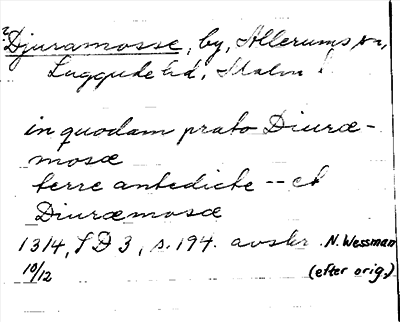 ?Djuramosse, by, Allerums sn,
Luggude hd, Malm l
in quodam prato Diuræ-
mosæ
terre antedicte -- et
Diuræmosæ
1314, SD 3, s. 194. avskr. N. Wessman
10/12 (efter orig.)